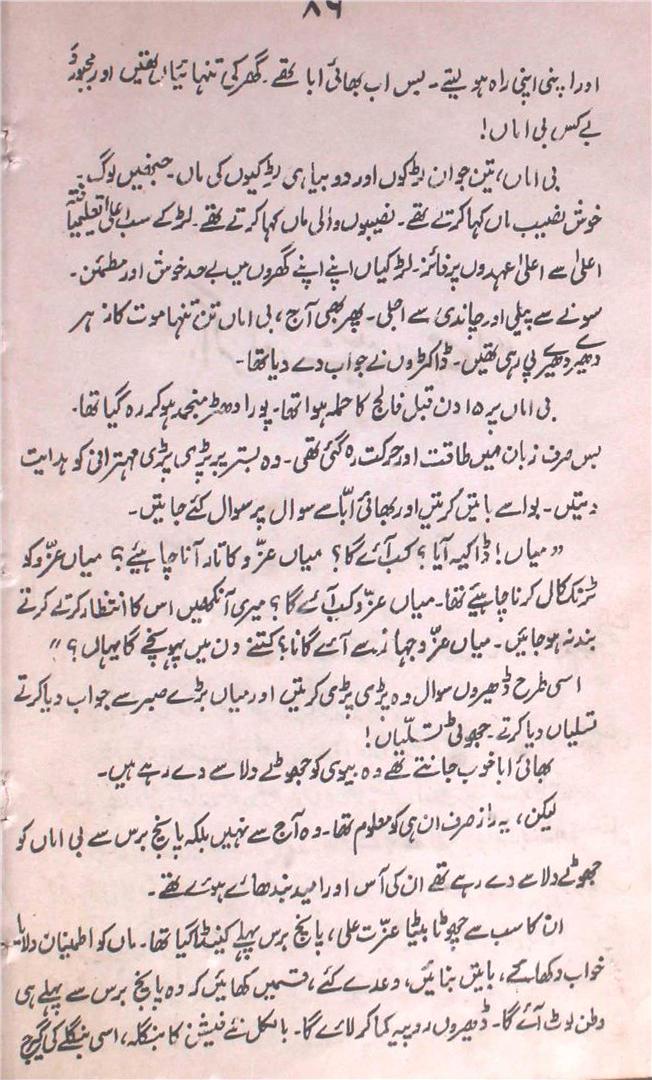 ۸۶
اور اپنی اپنی راہ ہو لیتے۔ بس اب بھائی ابا تھے۔ گھر کی تنہائیاں تھیں اور مجبور و
بے کس بی اماں!
بی اماں، تین جوان لڑکوں اور دو بیاہی لڑکیوں کی ماں۔ جنھیں لوگ
خوش نصیب ماں کہا کرتے تھے۔ نصیبوں والی ماں کہا کرتے تھے۔ لڑکے سب اعلیٰ تعلیمیافتہ
اعلیٰ سے اعلیٰ عہدوں پر فائز۔ لڑکیاں اپنے اپنے گھروں میں بے حد خوش اور مطمئن۔
سونے سے پیلی اور چاندی سے اجلی۔ پھر بھی آج، بی اماں تن تنہا موت کا زہر
دھیرے دھیرے پی رہی تھیں۔ ڈاکٹروں نے جواب دے دیا تھا۔
بی اماں پر ۱۵ دن قبل فالج کا حملہ ہوا تھا۔ پورا دھڑ منجمد ہو کر رہ گیا تھا۔
بس صرف زبان میں طاقت اور حرکت رہ گئی تھی۔ وہ بستر پر پڑی پڑی مہترانی کو ہدایت
دیتیں۔ بوا سے باتیں کرتیں اور بھائی ابّا سے سوال پر سوال کئے جاتیں۔
”میاں! ڈاکیہ آیا؟ کب آئے گا؟ میاں عزّو کا تار آنا چاہیئے؟ میاں عزّو کو
ٹرنک کال کرنا چاہیئے تھا۔ میاں عزّو کب آئے گا؟ میری آنکھیں اس کا انتظار کرتے کرتے
بند نہ ہو جائیں۔ میاں عزّو جہاز سے آئے گا نا؟ کتنے دن میں پہونچے گا یہاں؟“
اسی طرح ڈھیروں سوال وہ پڑی پڑی کرتیں اور میاں بڑے صبر سے جواب دیا کرتے
تسلیاں دیا کرتے۔ جھوٹی تسلّیاں!
بھائی ابا خوب جانتے تھے وہ بیوی کو جھوٹے دلاسے دے رہے ہیں۔
لیکن، یہ راز صرف ان ہی کو معلوم تھا۔ وہ آج سے نہیں بلکہ پانچ برس سے بی اماں کو
جھوٹے دلاسے دے رہے تھے ان کی آس اور امید بندھائے ہوئے تھے۔
ان کا سب سے چھوٹا بیٹا عزّت علی، پانچ برس پہلے کینیڈا گیا تھا۔ ماں کو اطمینان دلایا
خواب دکھائے، باتیں بنائیں، وعدے کئے، قسمیں کھائیں کہ وہ پانچ برس سے پہلے ہی
وطن لوٹ آئے گا۔ ڈھیروں روپیہ کما کر لائے گا۔ بالکل نئے فیشن کا بنگلہ، اسی بنگلے کی